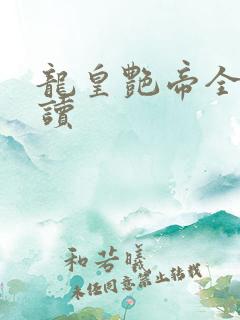 龍皇艷帝全
讀
和若曦
未經同意禁止轉載